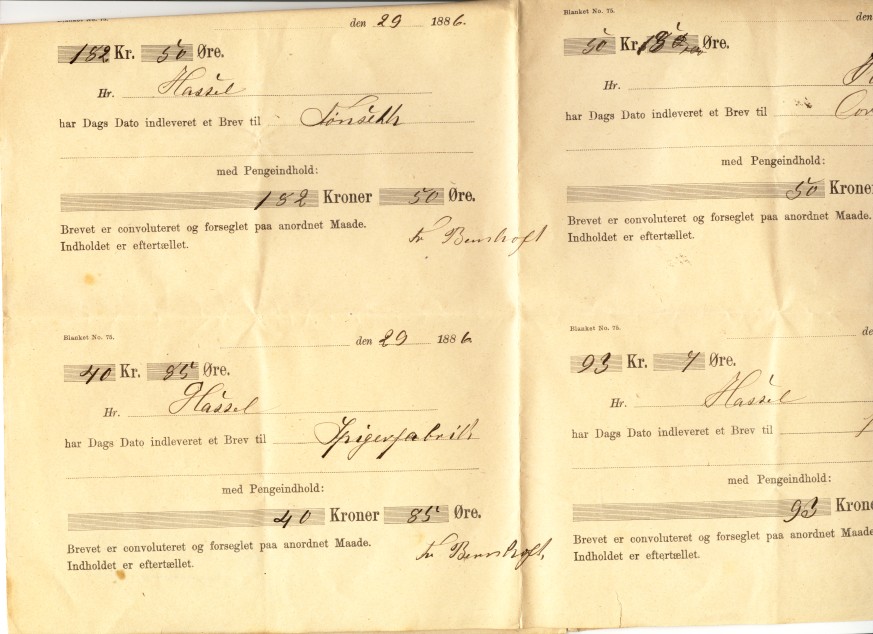 den 29 1886.
152 Kr. 50 Øre.
Hr. Hassel
har Dags Dato indleveret et Brev til Tønseth
med Pengeindhold:
152 Kroner 50 Øre.
Brevet er convoluteret og forseglet paa anordnet Maade.
Indholdet er eftertællet.
Blanket No. 75.
den 29 1886
40 Kr. 85 Øre.
Hr. Hassel
har Dags Dato indleveret et Brev til Spigerfabrik
med Pengeindhold:
40 Kroner 85 Øre.
Brevet er convoluteret og forseglet paa anordnet Maade.
Indholdet er eftertællet.
Blanket No. 75.
den
50 Kr. Øre.
Hr.
har Dags Dato indleveret et Brev til
med Pengeindhold:
50 Kroner
Brevet er convoluteret og forseglet paa anordnet Maade.
Indholdet er eftertællet.
Blanket No. 75.
de
93 Kr. 7 Øre.
Hr. Hassel
har Dags Dato indleveret et Brev til
med Pengeindhold:
93 Krone
Brevet er convoluteret og forseglet paa anordnet Maade
Indholdet er eftertællet.